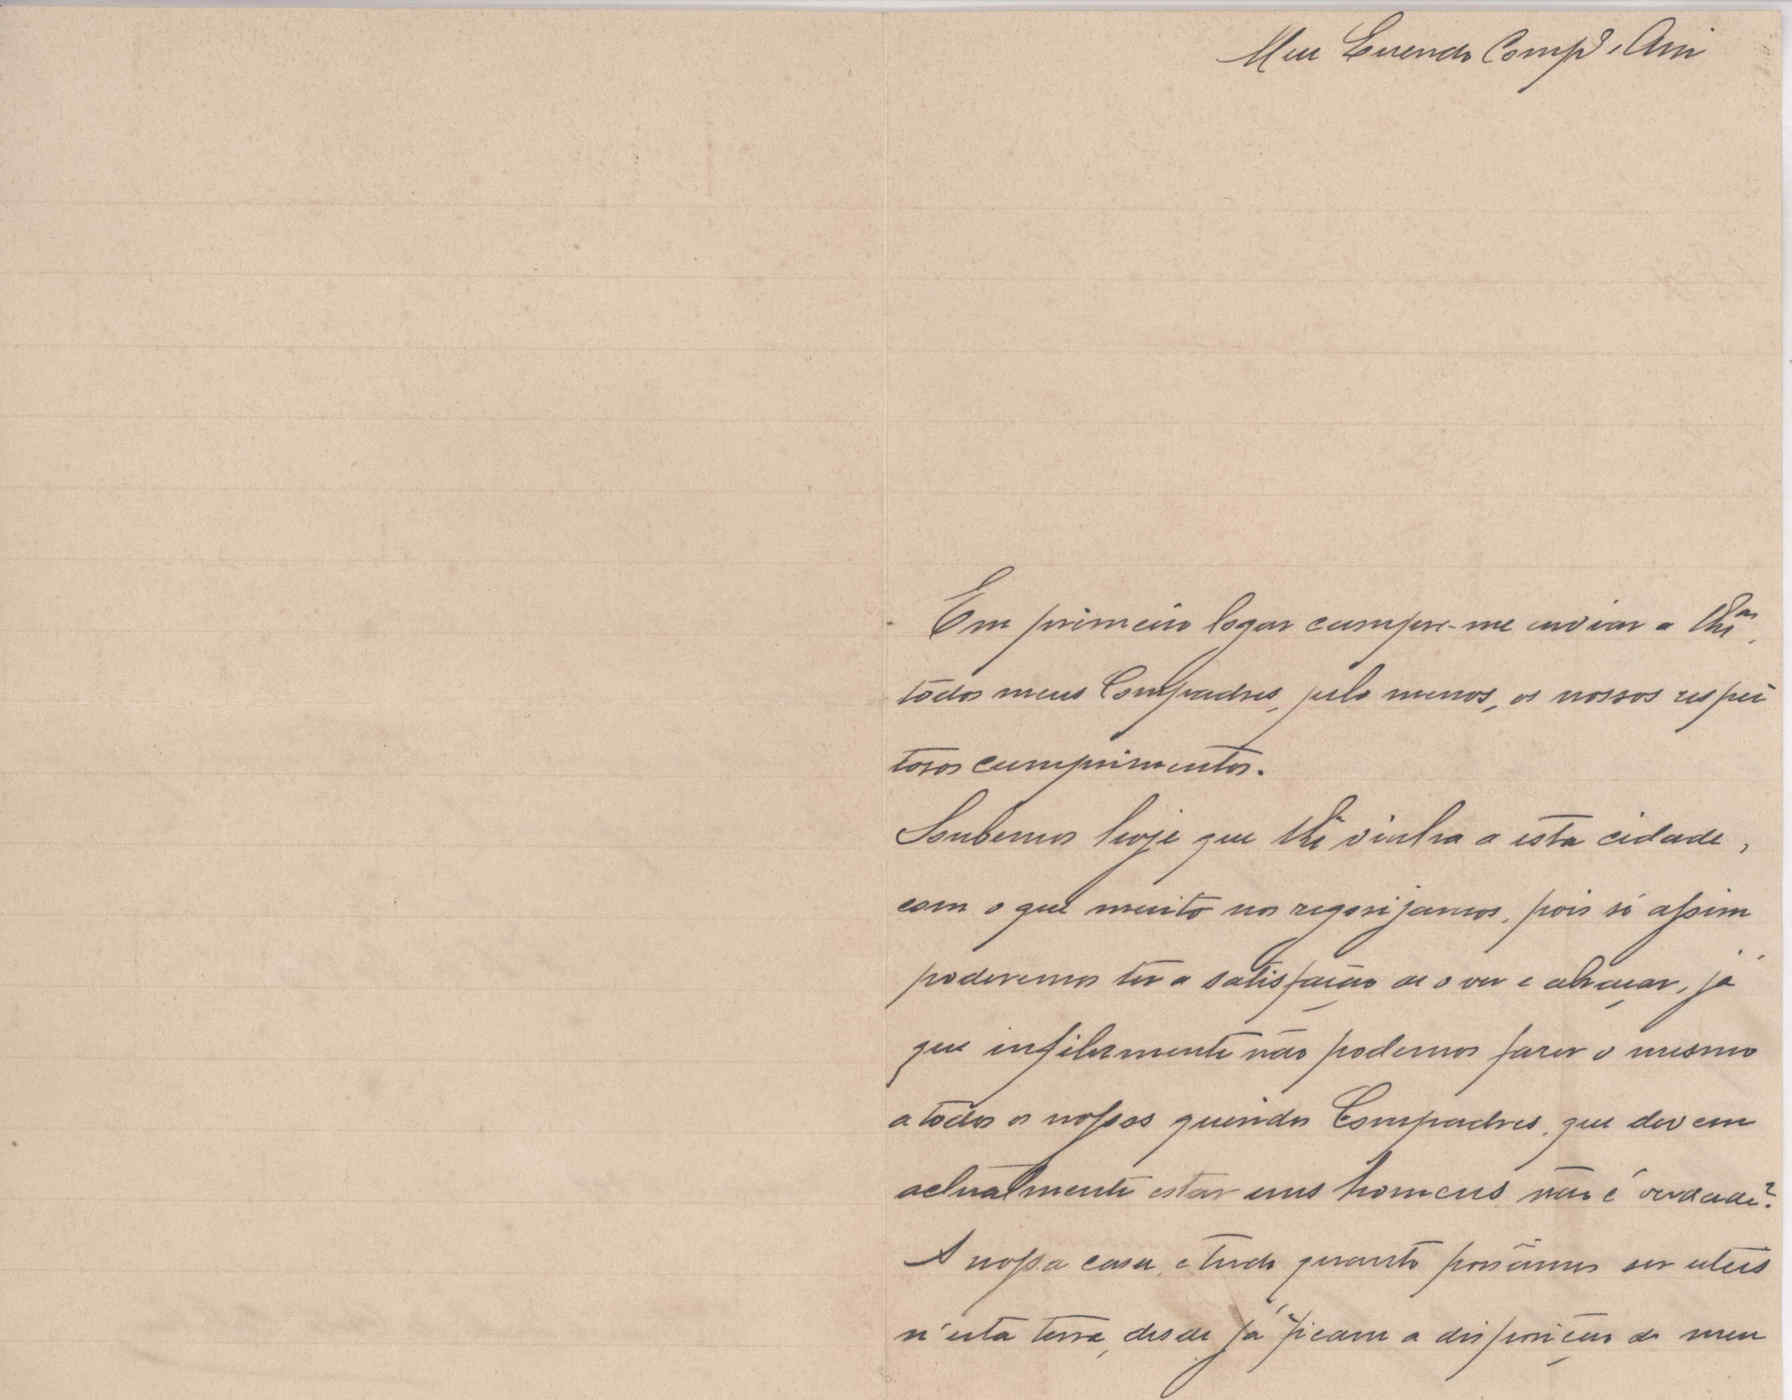 Meu Querido Comp.e e Am
Em primeiro logar cumpre-me enviar a
todos meus Compadres, pelo menos, os nossos respei
tosos cumprimentos.
Soubemos hoje que vinha a esta cidade,
com o que muito nos regosijamos, pois só assim
poderemos ter a satisfação de o ver e abraçar, já
que infelizmente não podemos fazer o mesmo
a todos os nossos queridos Compadres, que devem
actualmente estar uns homens não é verdade?
A nossa casa, e tudo quanto possâmos ser uteis
n'esta terra, desde já ficam a disposição do meu